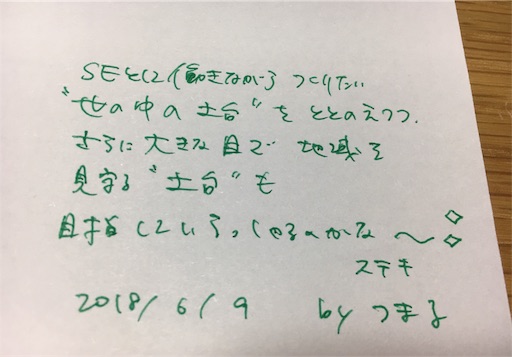 SEとして働きながら つくりたい
“世の中の土台”を ととのえつつ、
さらに大きな目で 地域を
見守る“土台”も
目指していらっしゃるのかな〜
ステキ
2018/6/9 by つまる